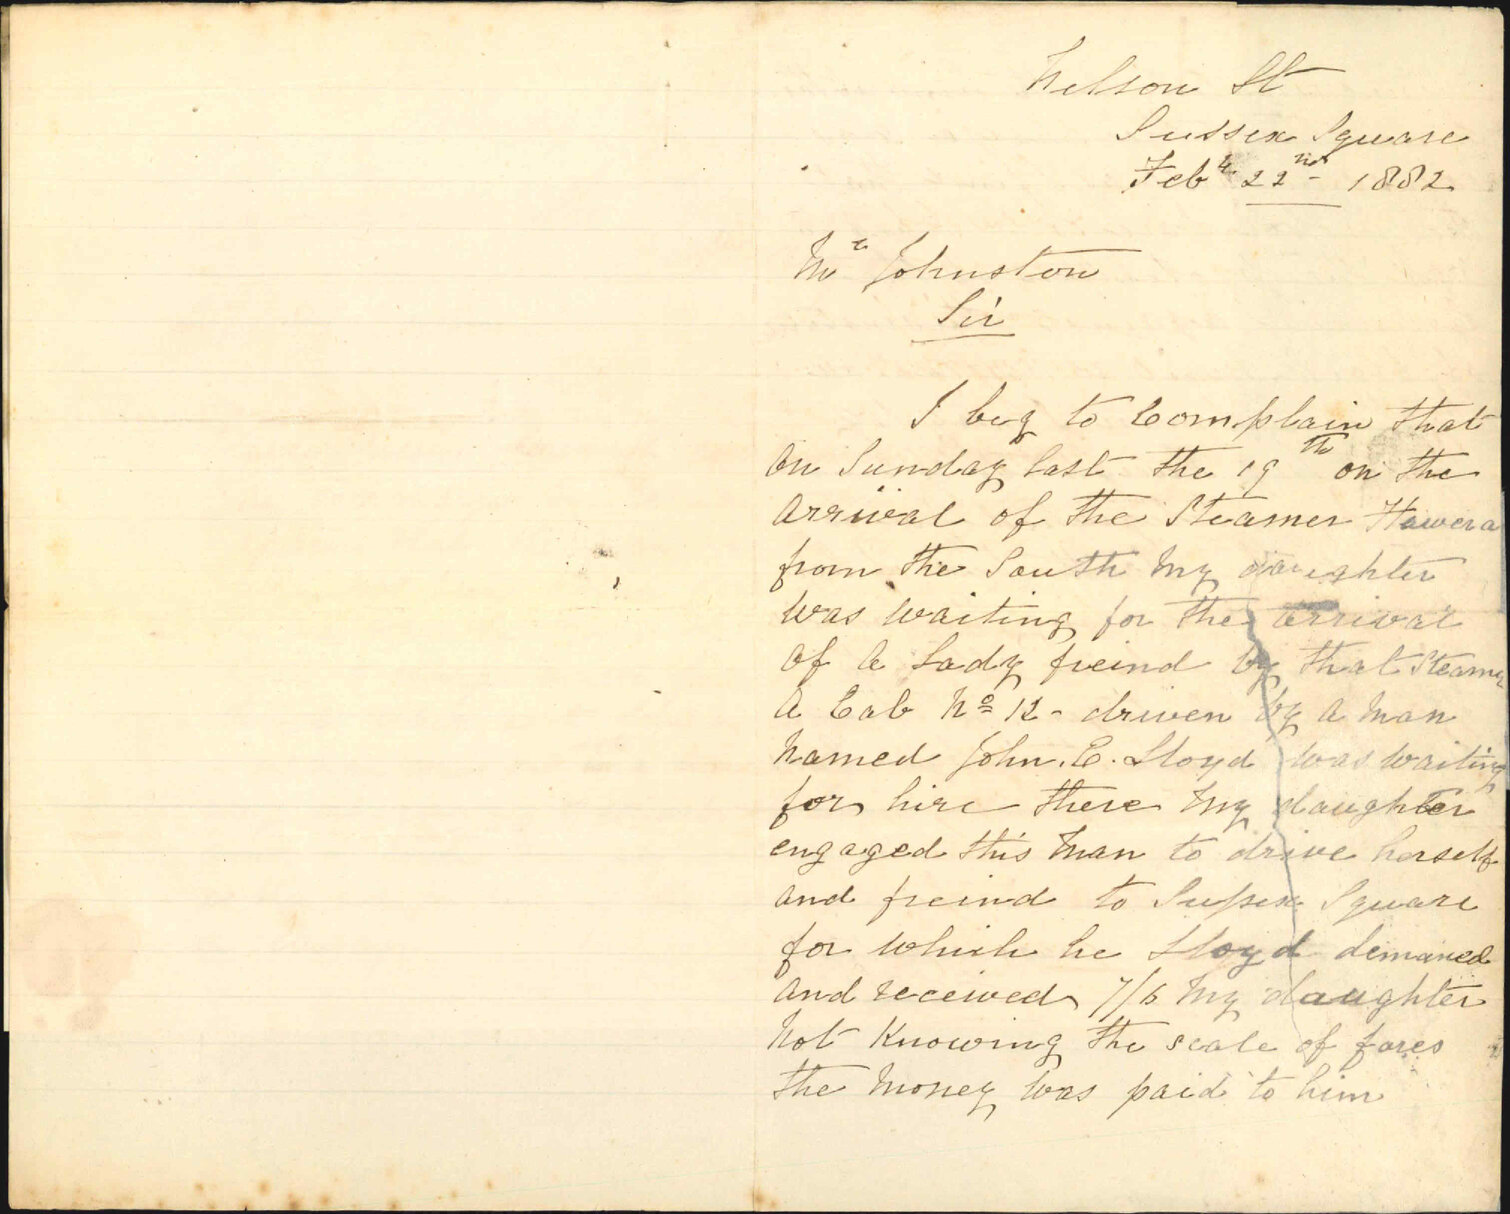 Nelson St
Sussex Square
Feby 22nd 1882
Mr Johnston
Sir
I beg to Complain that
on Sunday last the 19th on the
Arrival of the Steamer Hawera
from the South My daughter
was waiting for the arrival
of a Lady freind by that Steamer
A Cab No 12 - driven by a Man
Named John. E. Lloyd was waiting
for hire there My daughter
engaged this Man to drive herself
and freind to Sussex Square
for which he Lloyd demaned
and received 7/6 My daughter
Not Knowing the scale of fares
the Money was paid to him